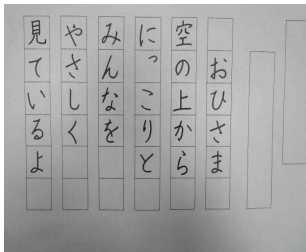 おひさま
空の上から
にっこりと
みんなを
やさしく
見ているよ